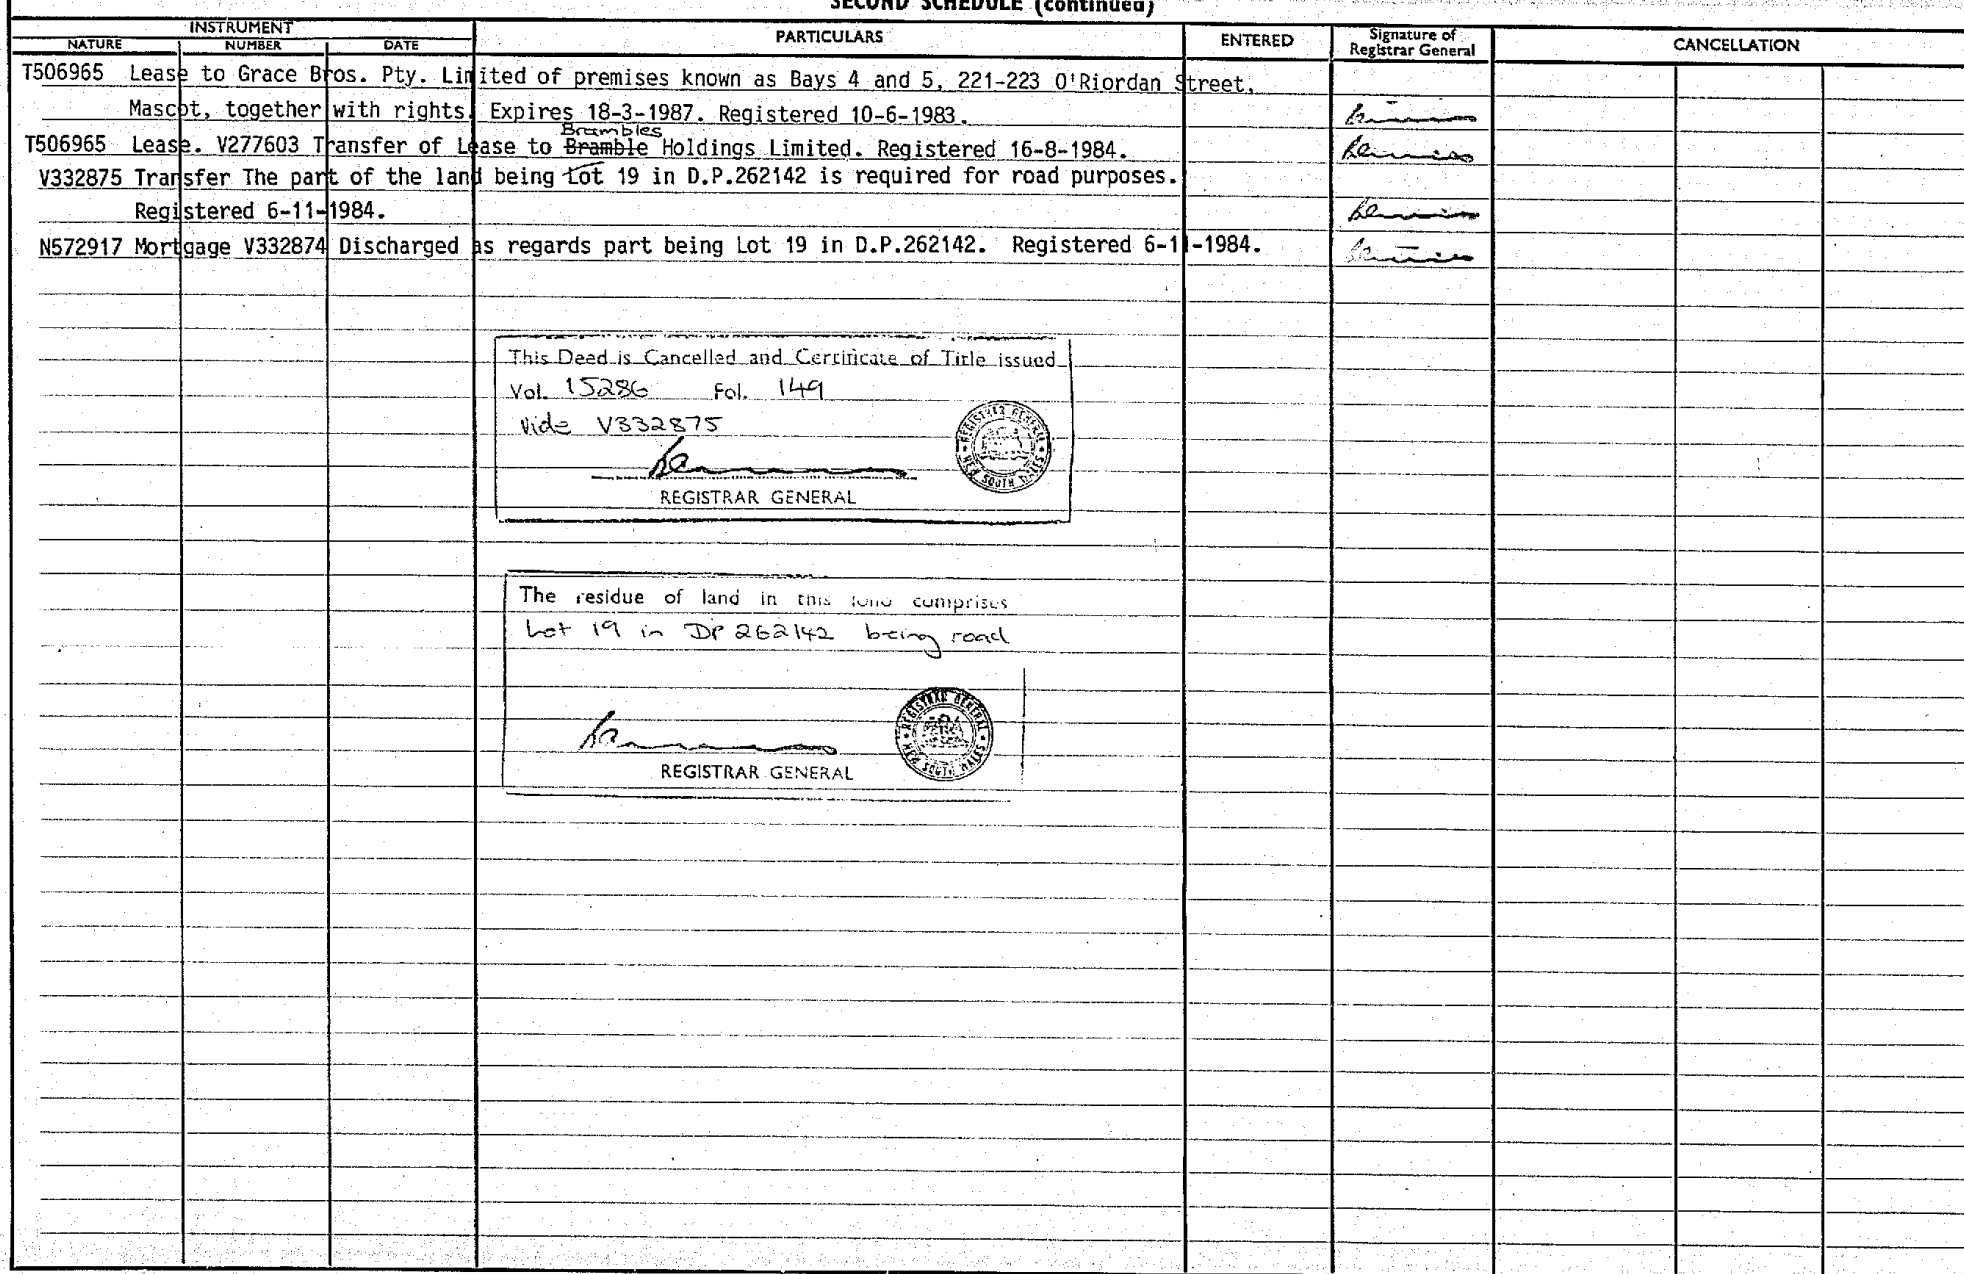 SECOND SCHEDULE (continued)
INSTRUMENT
NATURE NUMBER DATE PARTICULARS ENTERED Signature of Registrar General CANCELLATION
T506965 Lease to Grace Bros. Pty. Limited of premises known as Bays 4 and 5, 221-223 O'Riordan Street,
Mascot, together with rights. Expires 18-3-1987. Registered 10-6-1983.
Brambles
T506965 Lease. V277603 Transfer of Lease to Bramble Holdings Limited. Registered 16-8-1984.
V332875 Transfer The part of the land being Lot 19 in D.P.262142 is required for road purposes.
Registered 6-11-1984.
N572917 Mortgage V332874 Discharged as regards part being Lot 19 in D.P.262142. Registered 6-11-1984.
This Deed is Cancelled and Certificate of Title issued
Vol. 15286 Fol. 149
vide V332875
REGISTRAR GENERAL
REGISTRAR GENERAL NEW SOUTH WALES
The residue of land in this folio comprises
Lot 19 in DP 262142 being road
REGISTRAR GENERAL
REGISTRAR GENERAL NEW SOUTH WALES